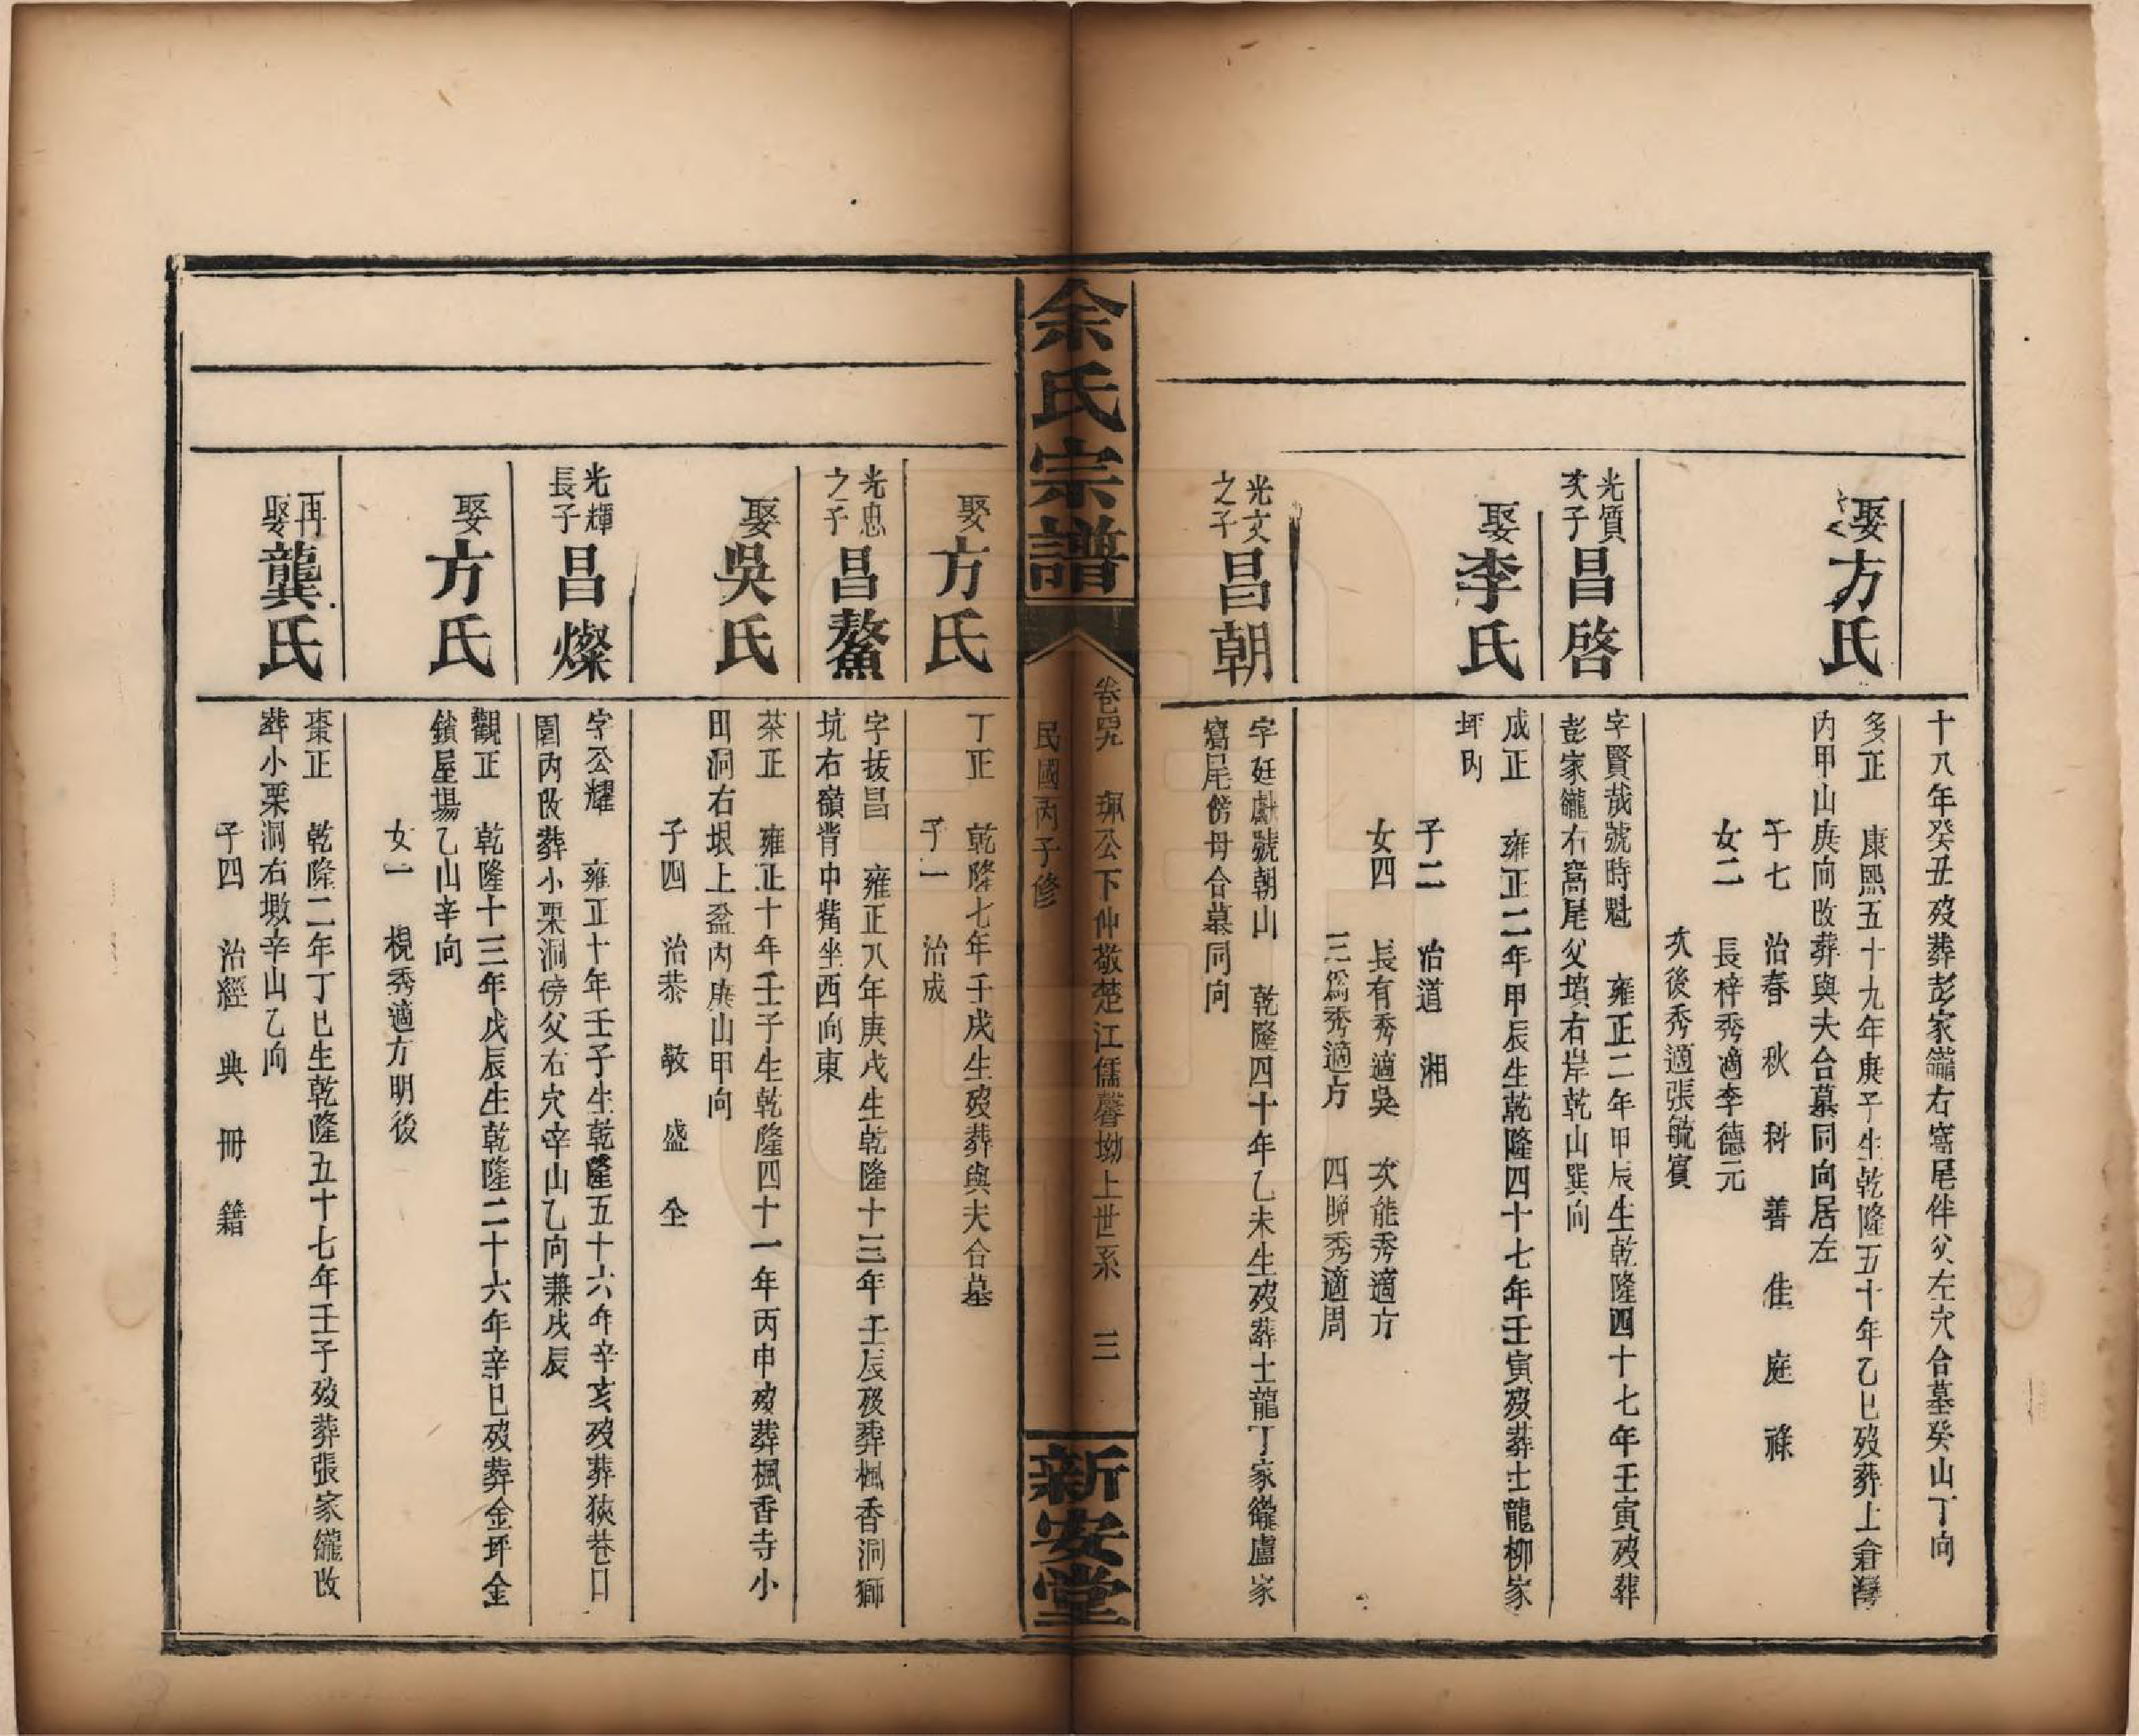 十八年癸丑歿葬彭家𡶶右窩尾伴父左穴合墓癸山丁向
娶方氏
多正 康熙五十九年庚子生乾隆五十年乙巳歿葬上倉灣
內甲山庚向改葬與夫合墓同向居左
子七 治春 秋 科 善 佳 庭 祿
女二 長梓秀適李德元
次後秀適張毓賓
光質
次子
昌啓
字賢哉號時魁 雍正二年甲辰生乾隆四十七年壬寅歿葬
彭家𡶶右窩尾父墳右岸乾山巽向
娶李氏
成正 雍正二年甲辰生乾隆四十七年壬寅歿葬士龍柳家
坪內
子二 治道 湘
女四 長有秀適吳 次能秀適方
三爲秀適方 四晚秀適周
光文
之子
昌朝
字廷獻號朝山 乾隆四十年乙未生歿葬士龍丁家𡶶盧家
窩尾傍母合墓同向
余氏宗譜
卷
珮公下仲敬楚江儒馨坳上世系 三
民國丙子修
新安堂
娶方氏
丁正 乾隆七年壬戌生歿葬與夫合墓
子一 治成
光忠
之子
昌鰲
字拔昌 雍正八年庚戌生乾隆十三年壬辰歿葬楓香洞獅
坑右嶺背中嘴坐西向東
娶吳氏
茶正 雍正十年壬子生乾隆四十一年丙申歿葬楓香寺小
田洞右垠上盆內庚山甲向
子四 治恭 敬 盛 全
光輝
長子
昌燦
字公耀 雍正十年壬子生乾隆五十六年辛亥歿葬狹巷口
園內改葬小栗洞傍父右穴辛山乙向兼戌辰
娶方氏
觀正 乾隆十三年戊辰生乾隆二十六年辛巳歿葬金坪金
鎖屋場乙山辛向
女一 梘秀適方明後
再
娶
龔氏
棗正 乾隆二年丁巳生乾隆五十七年壬子歿葬張家𡶶改
葬小栗洞右墩辛山乙向
子四 治經 典 冊 籍